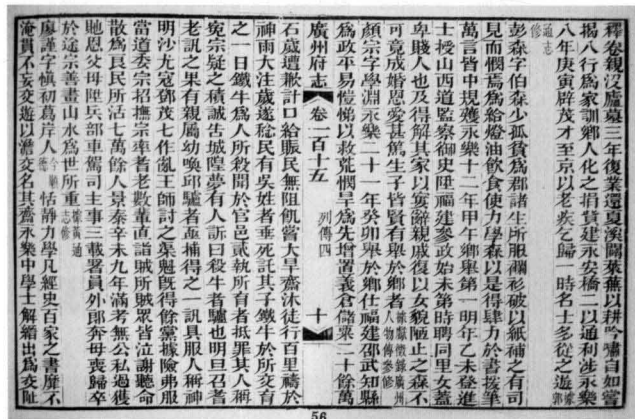 釋卷親沒廬墓三年復業還夏溪闢萊蕪以耕吟嘯自如嘗
揭八行爲家訓鄉人化之捐貲建永安橋二以通利涉永樂
八年庚寅辟茂才至京以老疾乞歸一時名士多從之遊郭
通志修
彭森字伯森少孤貧爲郡諸生所服襴衫破以紙補之有司
見而憫焉爲給燈油飲食使力學森以是得肆力於書援筆
萬言皆中規矱永樂十二年甲午鄉舉第一明年乙未登進
士授山西道監察御史陞福建參政始未第時聘同里女蓋
卑賤人也及得解其家以寠辭親戚復以女貌陋止之森不
可竟成婚恩愛甚篤生子皆賢有舉於鄉者據懸榻錄廣州人物傳參修
顏宗字學淵永樂二十一年癸卯舉於鄉仕福建邵武知縣
爲政平易愷悌以救荒憫旱爲先增置義倉儲粟二十餘萬
廣州府志 卷一百十五 列傳四 十
石歲遭歉計口給賑民無阻飢嘗大旱齋沐徒行百里禱於
神雨大注歲遂稔民有吳姓者垂死託其子鐵牛於所交育
之一日鐵牛爲人所殺聞於官邑貳執所育者抵罪其人稱
寃宗疑之積誠告城隍夢有人訴曰殺牛者驢也明旦召耆
老訊之果有親屬幼喚邱驢者亟捕得之一訊具服人稱神
明沙尤寇鄧茂七作亂王師討之渠魁旣得餘黨據險弗服
當道委宗招撫宗率耆老數輩直詣賊所賊眾皆泣謝聽命
散爲良民所活七萬餘人景泰辛未九年滿考無公私過獲
貤恩父母陞兵部車駕司主事三載署員外郎奔母喪歸卒
於途宗善畫山水爲世所重據黃通志修
廖謹字愼初爲庠人 恬靜力學凡經史百家之書靡不
淹貫不妄交遊以澹交名其齋永樂中學士解縉出爲交阯
56